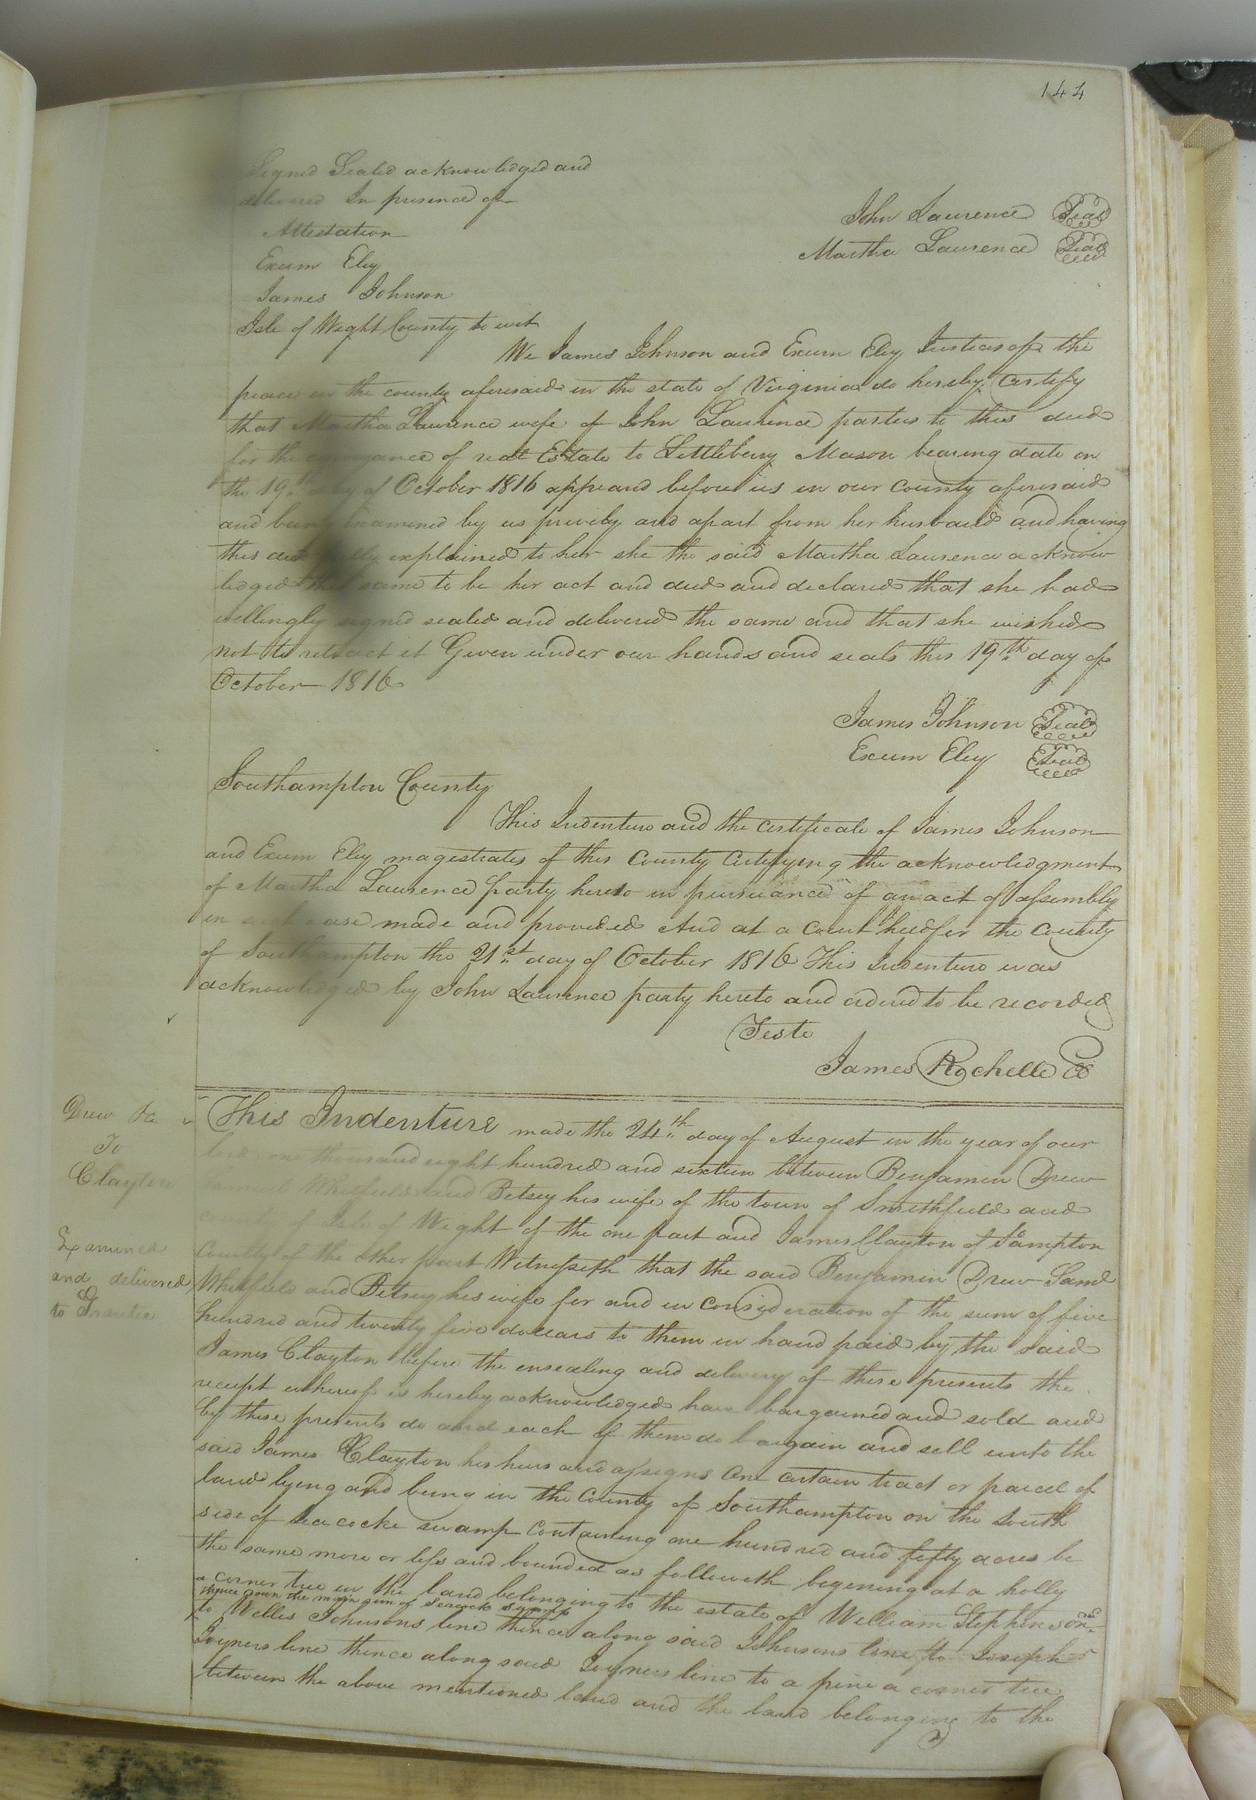 144
Signed Sealed acknowledged and
delivered In presence of
Attestation
Exum Eley
James Johnson
John Laurence Seal
Martha Laurence Seal
Isle of Wight County to wit
We James Johnson and Exum Eley Justices of the
peace in the county aforesaid in the state of Virginia do hereby Certify
that Martha Laurence wife of John Laurence parties to this deed
for the conveyance of real Estate to Littleberry Mason bearing date on
the 19th day of October 1816 appeard before us in our County aforesaid
and being Examined by us privily and apart from her husband and having
this deed fully explained to her she the said Martha Laurence acknow
ledged the same to be her act and deed and declared that she had
willingly signed sealed and delivered the same and that she wished
not to retract it Given under our hands and seals this 19th day of
October 1816
James Johnson Seal
Exum Eley Seal
Southampton County
This Indenture and the certificate of James Johnson
and Exum Eley magestrates of this County Certifying the acknowledgment
of Martha Laurence party hereto in pursuance of an act of assembly
in such case made and provided And at a Court held for the County
of Southampton the 21st day of October 1816 This Indenture was
acknowledged by John Laurence party hereto and ordered to be recorded
Teste
James Rochelle
Drew &c
To
Clayton
Examined
and delivered
to Grantee
This Indenture made the 24th day of August in the year of our
lord one thousand eight hundred and sixteen between Benjamin Drew
Whitfield and Betsey his wife of the town of Smithfield and
county of Isle of Wight of the one part and James Clayton of S.ampton
County of the other part Witnesseth that the said Benjamin Drew Saml
Whitfield and Betsey his wife for and in consideration of the sum of five
hundred and twenty five dollars to them in hand paid by the said
James Clayton before the ensealing and delivery of these presents the
receipt whereof is hereby acknowledged have bargained and sold and
by these presents do and each of them do bargain and sell unto the
said James Clayton his heirs and assigns One certain tract or parcel of
land lying and being in the County of Southampton on the South
side of Seacocke swamp Containing one hundred and fifty acres be
the same more or less and bounded as followeth begening at a holly
a corner tree in the land belonging to the estate of William Stephenson
thence down the main run of Seacock swamp
to Willis Johnsons line thence along said Johnsons line to Joseph
Joyners line thence along said Joyners line to a pine a corner tree
between the above mentioned land and the land belonging to the